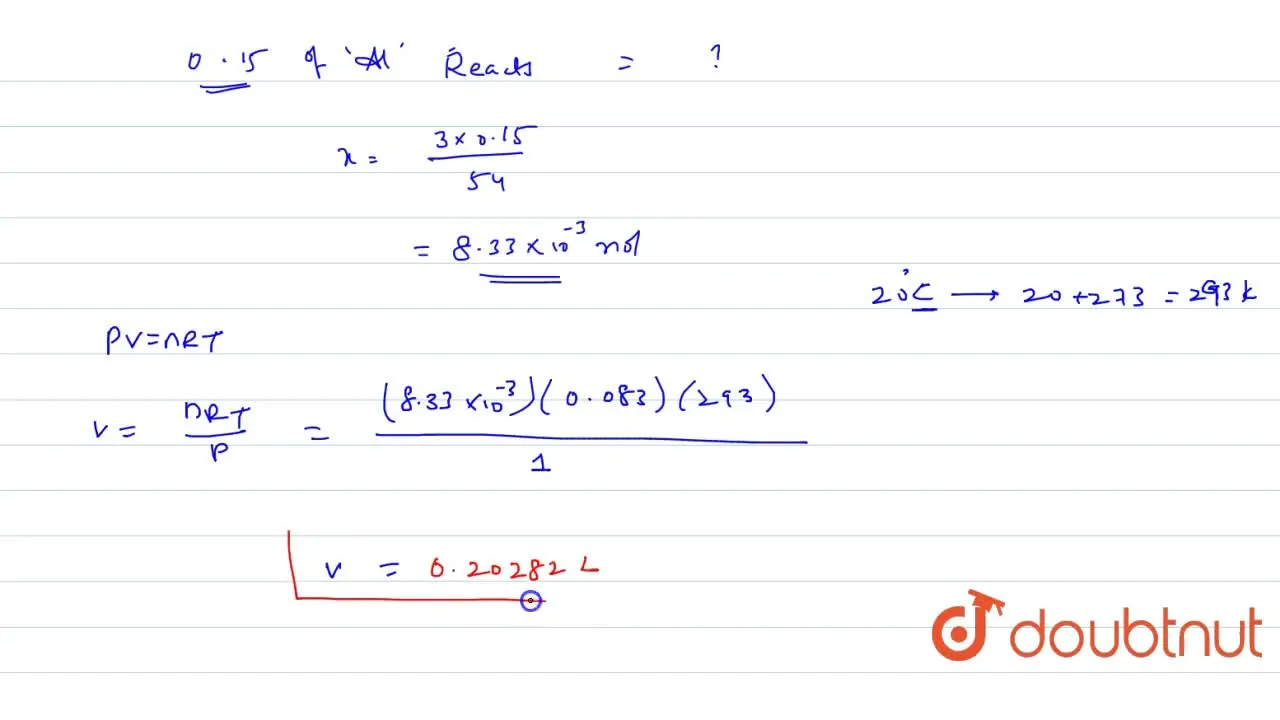 0.15 of 'Al' Reacts = ?
x = 3 × 0.15 / 54
= 8.33 × 10⁻³ mol
20°C → 20 + 273 = 293 K
PV = nRT
V = nRT / P = (8.33 × 10⁻³) (0.083) (293) / 1
V = 0.20282 L
doubtnut